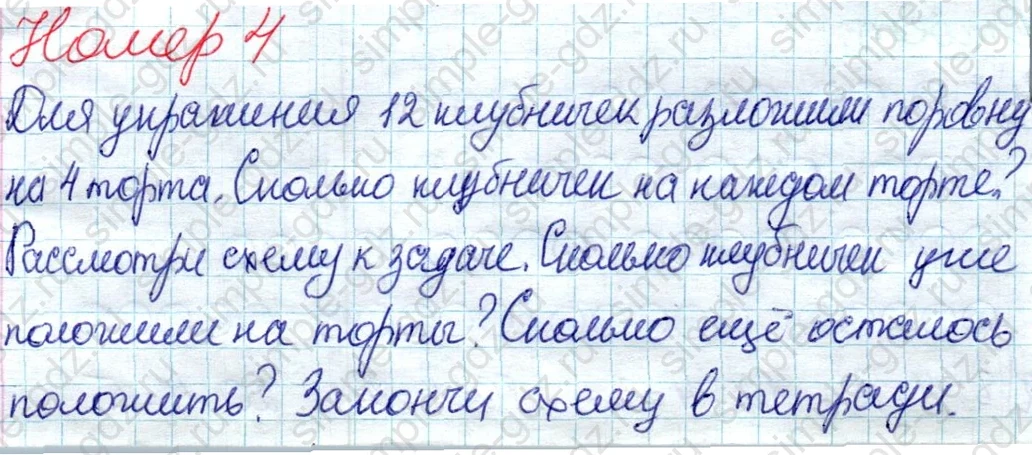 Номер 4
Для украшения 12 клубничек разложили поровну
на 4 торта. Сколько клубничек на каждом торте?
Рассмотри схему к задаче. Сколько клубничек уже
положили на торты? Сколько ещё осталось
положить? Закончи схему в тетради.